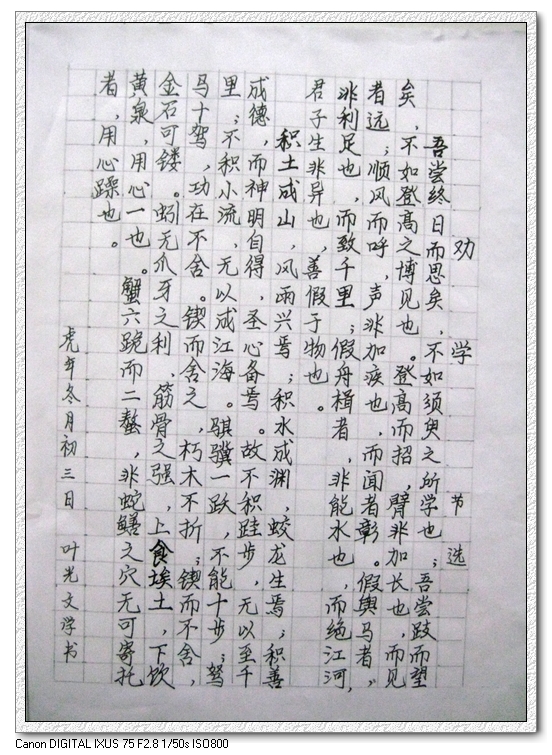 劝学 节选
吾尝终日而思矣，不如须臾之所学也；吾尝跂而望
矣，不如登高之博见也。登高而招，臂非加长也，而见
者远；顺风而呼，声非加疾也，而闻者彰。假舆马者，
非利足也，而致千里；假舟楫者，非能水也，而绝江河，
君子生非异也，善假于物也。
积土成山，风雨兴焉；积水成渊，蛟龙生焉；积善
成德，而神明自得，圣心备焉。故不积跬步，无以至千
里；不积小流，无以成江海。骐骥一跃，不能十步；驽
马十驾，功在不舍。锲而舍之，朽木不折；锲而不舍，
金石可镂。蚓无爪牙之利，筋骨之强，上食埃土，下饮
黄泉，用心一也。蟹六跪而二螯，非蛇鳝之穴无可寄托
者，用心躁也。
虎年冬月初三日 叶光文学书
Canon DIGITAL IXUS 75 F2.8 1/50s ISO800